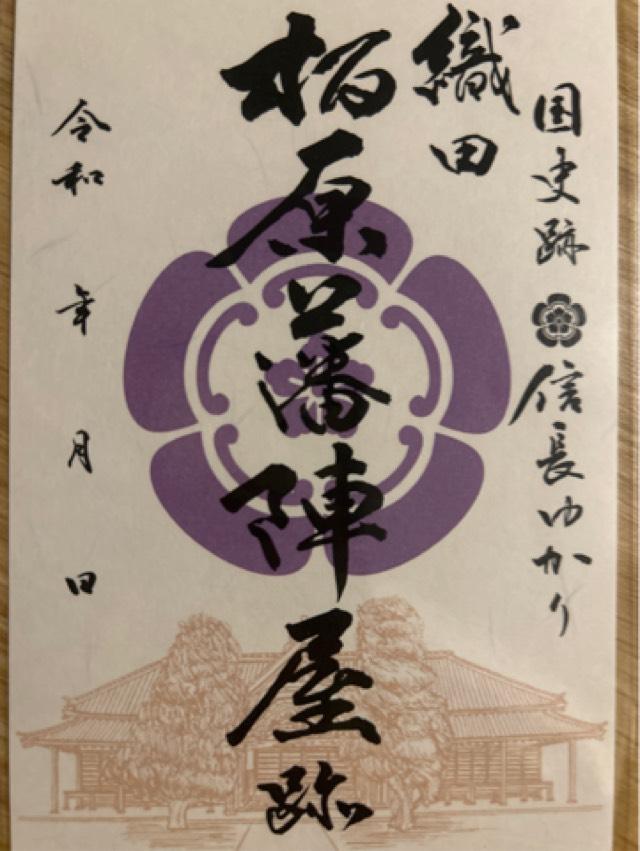 国史跡 信長ゆかり
織田
柏原藩陣屋跡
令和 年 月 日